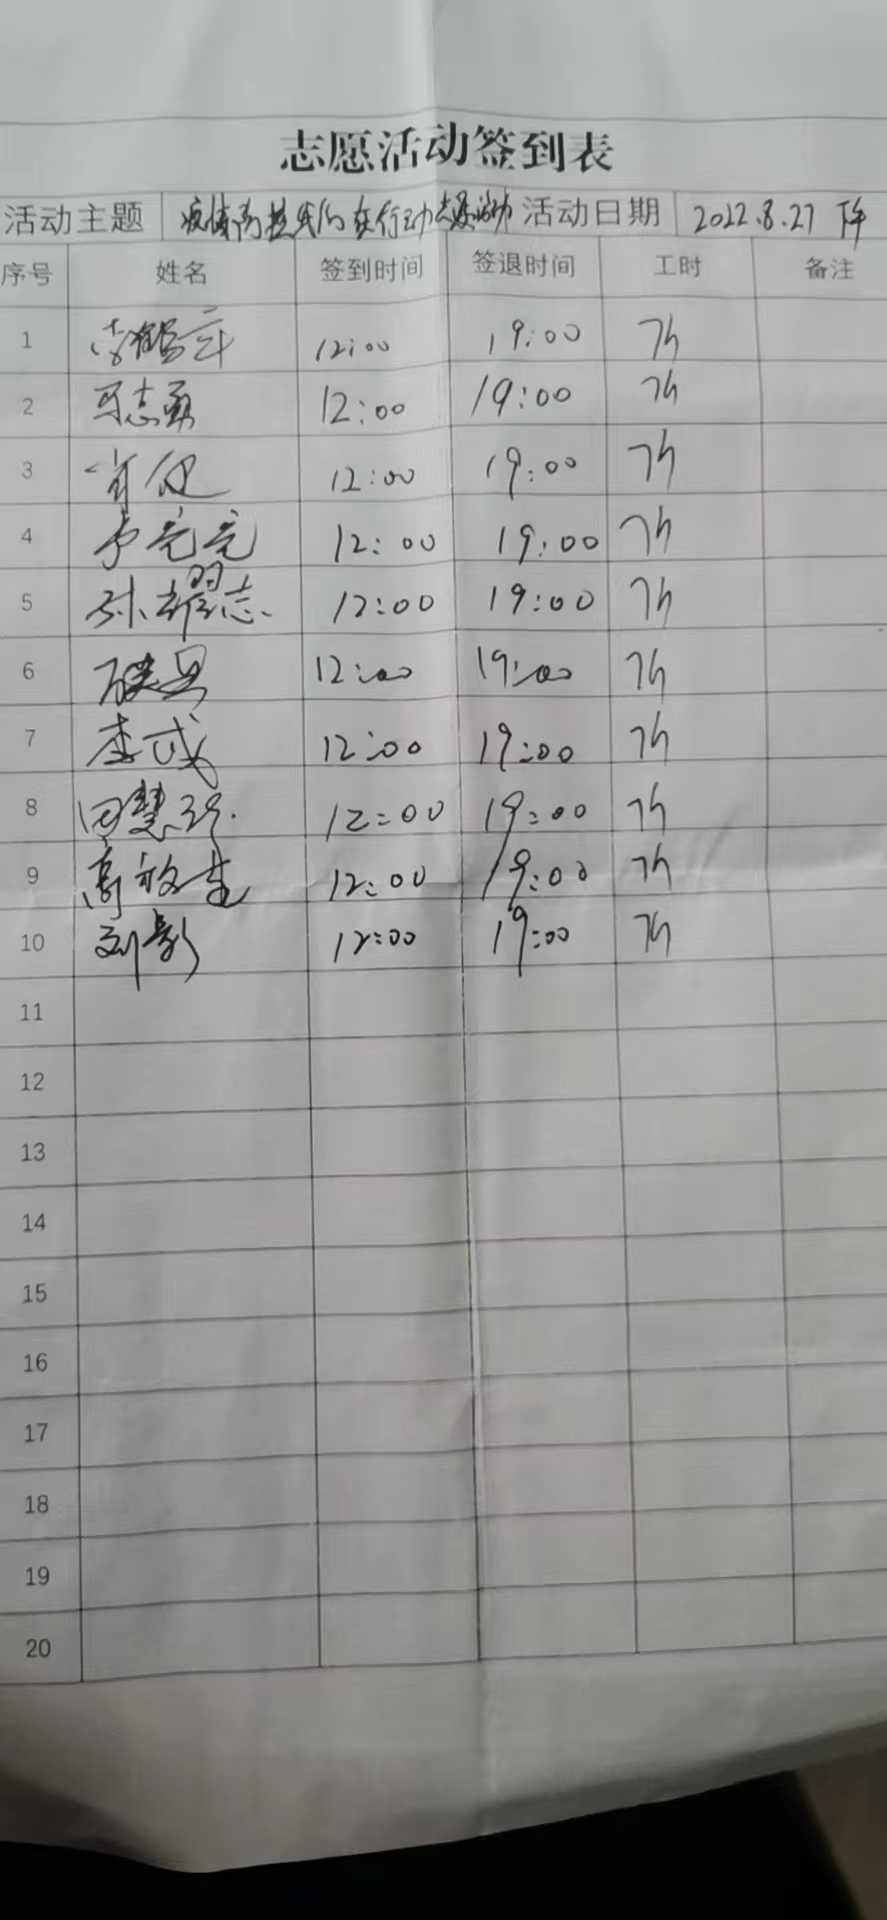 志愿活动签到表
活动主题 疫情防控我们在行动志愿活动 活动日期 2022.8.27 下午
序号 姓名 签到时间 签退时间 工时 备注
1 12:00 19:00 7h
2 志勇 12:00 19:00 7h
3 肖健 12:00 19:00 7h
4 卢亮亮 12:00 19:00 7h
5 孙耀志 12:00 19:00 7h
6 12:00 19:00 7h
7 李斌 12:00 19:00 7h
8 田慧 12:00 19:00 7h
9 高 12:00 19:00 7h
10 刘影 12:00 19:00 7h
11
12
13
14
15
16
17
18
19
20